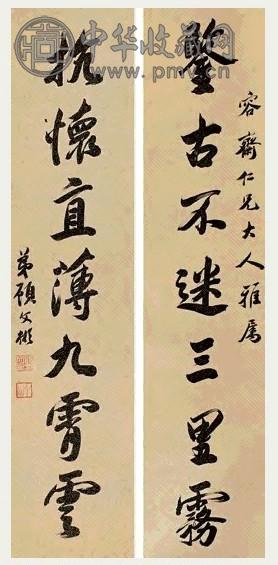 中华收藏网
www.pmv.cn
容齋仁兄大人雅屬
鑒古不迷三里霧
抗懷直薄九霄雲
弟顧文彬